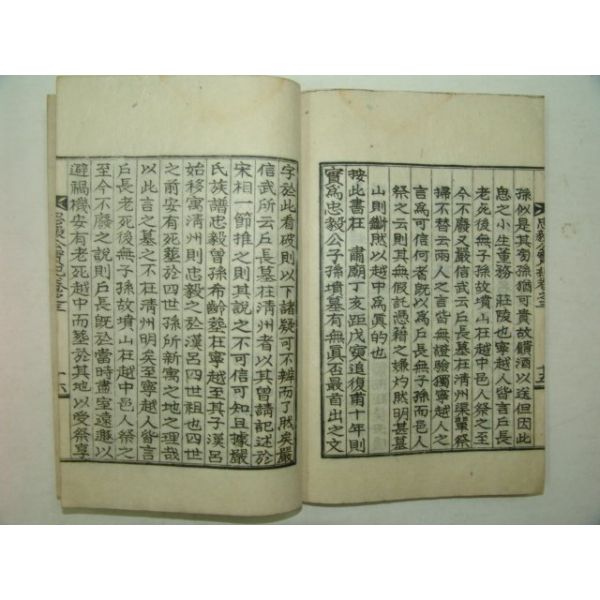 孫似是其蜀孫猶可貴故饋酒以送但因此
息之小生董務 莊陵也寧越人皆言戶長
老死後無子孫故墳山在越中邑人祭之至
今不廢又嚴信武云戶長墓在淸州渠輩祭
掃不替云兩人之言皆無證驗獨寧越人之
言爲可信何者旣以爲戶長無子孫而邑人
祭之云則其無假託憑藉之嫌灼然明甚墓
山則斷然以越中爲眞的也
按此書在 肅廟丁亥距戊寅追復甫十年則
實爲忠毅公子孫墳墓有無眞否最首出之文
字於此看破則以下諸疑可不辨而了然矣嚴
信武所云戶長墓在淸州者以其曾請記述於
宋相一節推之則其說之不可信可知且據嚴
氏族譜忠毅曾孫希齡墓在寧越至其子漢呂
始移寓淸州則忠毅之於漢呂四世祖也四世
之前安有死葬於四世孫所新寓之地之理哉
以此言之墓之不在淸州明矣至寧越人皆言
戶長老死後無子孫故墳山在越中邑人祭之
至今不廢之說則戶長旣於當時盡室遠遯以
避禍機安有老死越中而葬於其地以受祭享
忠毅公實紀卷之三
十五
十六